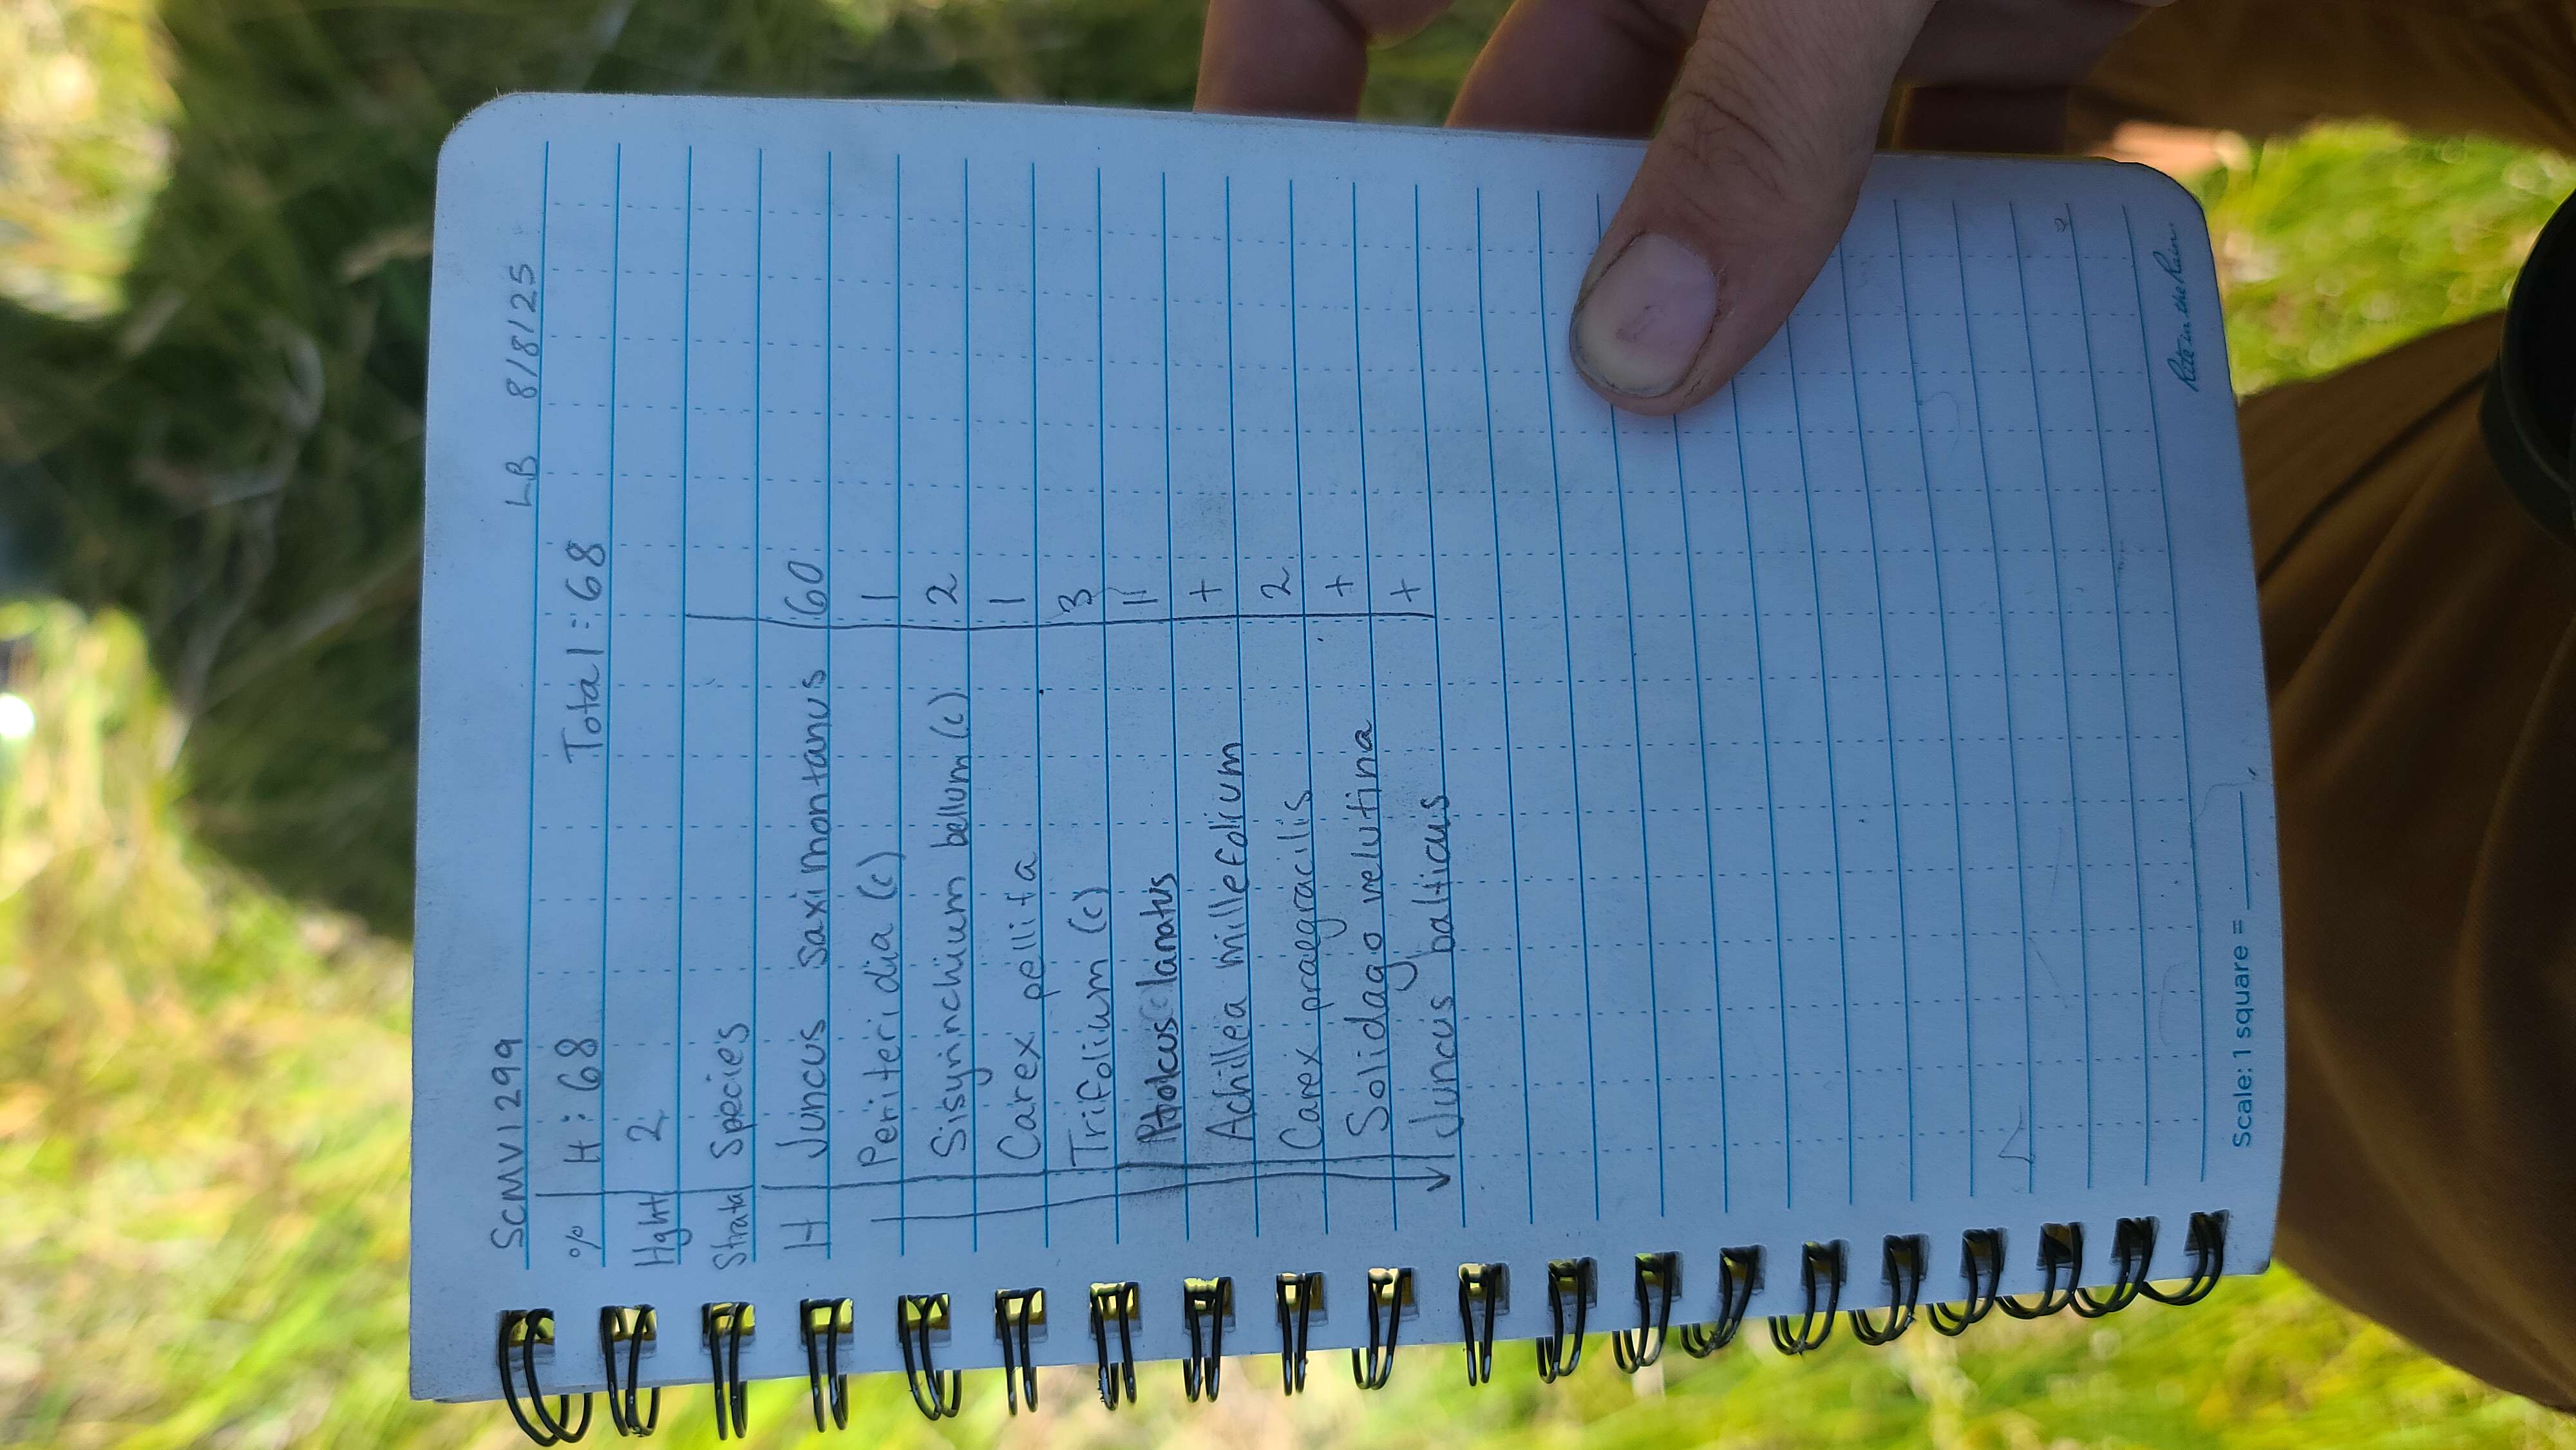 SCMV1299 LB 8/8/25
% H: 68 Total = 68
Hght 2
Strata Species
H Juncus saximontanus 60
Periteridia (c) 1
Sisyrinchium bellum (c) 2
Carex pellita 1
Trifolium (c) 3
Holcus lanatus 1
Achillea millefolium +
Carex praegracilis 2
Solidago velutina +
Juncus balticus +
Scale: 1 square =
Rite in the Rain